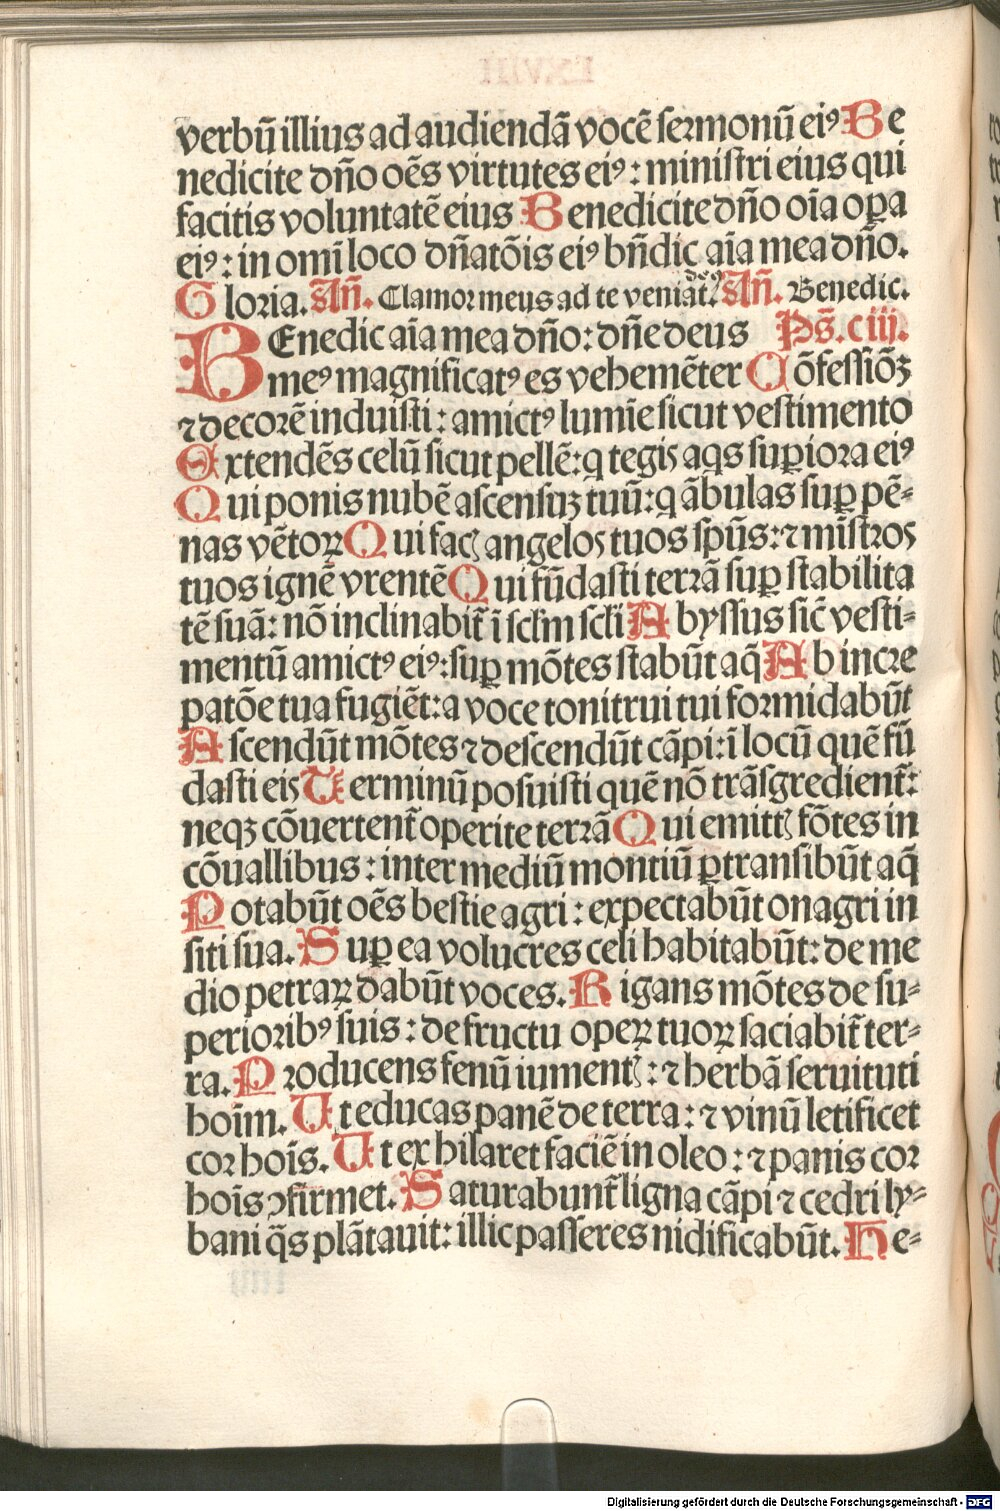 verbū illius ad audiendā vocē sermonū eiꝰ Be
nedicite dn̄o oēs virtutes eiꝰ: ministri eius qui
facitis voluntatē eius Benedicite dn̄o oīa oꝑa
eiꝰ: in omī loco dn̄atōis eiꝰ bn̄dic aīa mea dn̄o.
Gloria. An̄. Clamor meus ad te veniat̄. deꝰ An̄. Benedic.
BEnedic aīa mea dn̄o: dn̄e deus Ps̄. ciij.
meꝰ magnificatꝰ es vehemēter Cōfessiōꝫ
⁊ decorē induisti: amictꝰ lumīe sicut vestimento
Extendēs celū sicut pellē: q tegis aq̄s suꝑiora eiꝰ
Qui ponis nubē ascensuꝫ tuū: q ābulas suꝑ pē⸗
nas vētoꝝ Qui facis angelos tuos spūs: ⁊ mīstros
tuos ignē vrentē Qui fūdasti terrā suꝑ stabilita
tē suā: nō inclinabit̄ ī sclm̄ scli Abyssus sic̄ vesti⸗
mentū amictꝰ eiꝰ: suꝑ mōtes stabūt aq̄ Ab incre
patōe tua fugiēt: a voce tonitrui tui formidabūt
Ascendūt mōtes ⁊ descendūt cāpi: ī locū quē fū
dasti eis Terminū posuisti quē nō trāsgredient̄:
neqꝫ cōuertent̄ operite terrā Qui emittis fōtes in
cōuallibus: inter mediū montiū ꝑtransibūt aq̄
Potabūt oēs bestie agri: expectabūt onagri in
siti sua. Suꝑ ea volucres celi habitabūt: de me
dio petraꝝ dabūt voces. Rigans mōtes de su⸗
perioribꝰ suis: de fructu operꝝ tuoꝝ saciabit̄ ter⸗
ra. Producens fenū iumentis: ⁊ herbā seruituti
hoīm. Ut educas panē de terra: ⁊ vinū letificet
cor hoīs. Ut exhilaret faciē in oleo: ⁊ panis cor
hoīs ↄfirmet. Saturabunt̄ ligna cāpi ⁊ cedri ly⸗
bani q̄s plātauit: illic passeres nidificabūt. He⸗
Digitalisierung gefördert durch die Deutsche Forschungsgemeinschaft - DFG